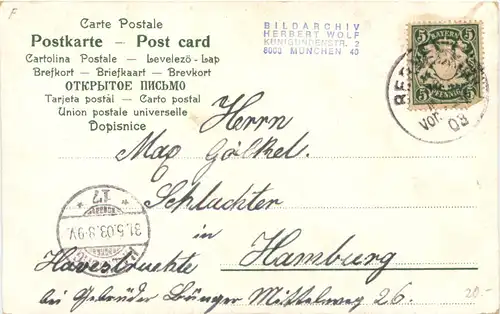 F
Carte Postale
Postkarte — Post card
Cartolina Postale — Levelező-Lap
Brefkort — Briefkaart — Brevkort
ОТКРЫТОЕ ПИСЬМО
Tarjeta postál — Carto postal
Union postale universelle
Dopisnice
BILDARCHIV
HERBERT WOLF
KUNIGUNDENSTR. 2
8000 MÜNCHEN 40
5 BAYERN 5
5 PFENNIG 5
Vor.
03
Herrn
Max Gölkel.
Schlachter
in
Hamburg
Havestruchte
bei Gebrüder Bünger Mittelweg 26.
* 17 *
31.5.03.8-9V.
20.-